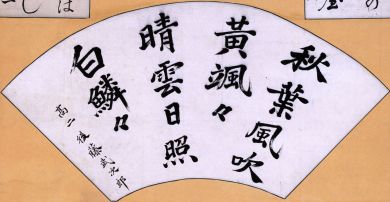 秋葉風吹
黃颯々
晴雲日照
白鱗々
高二 後藤武次郎